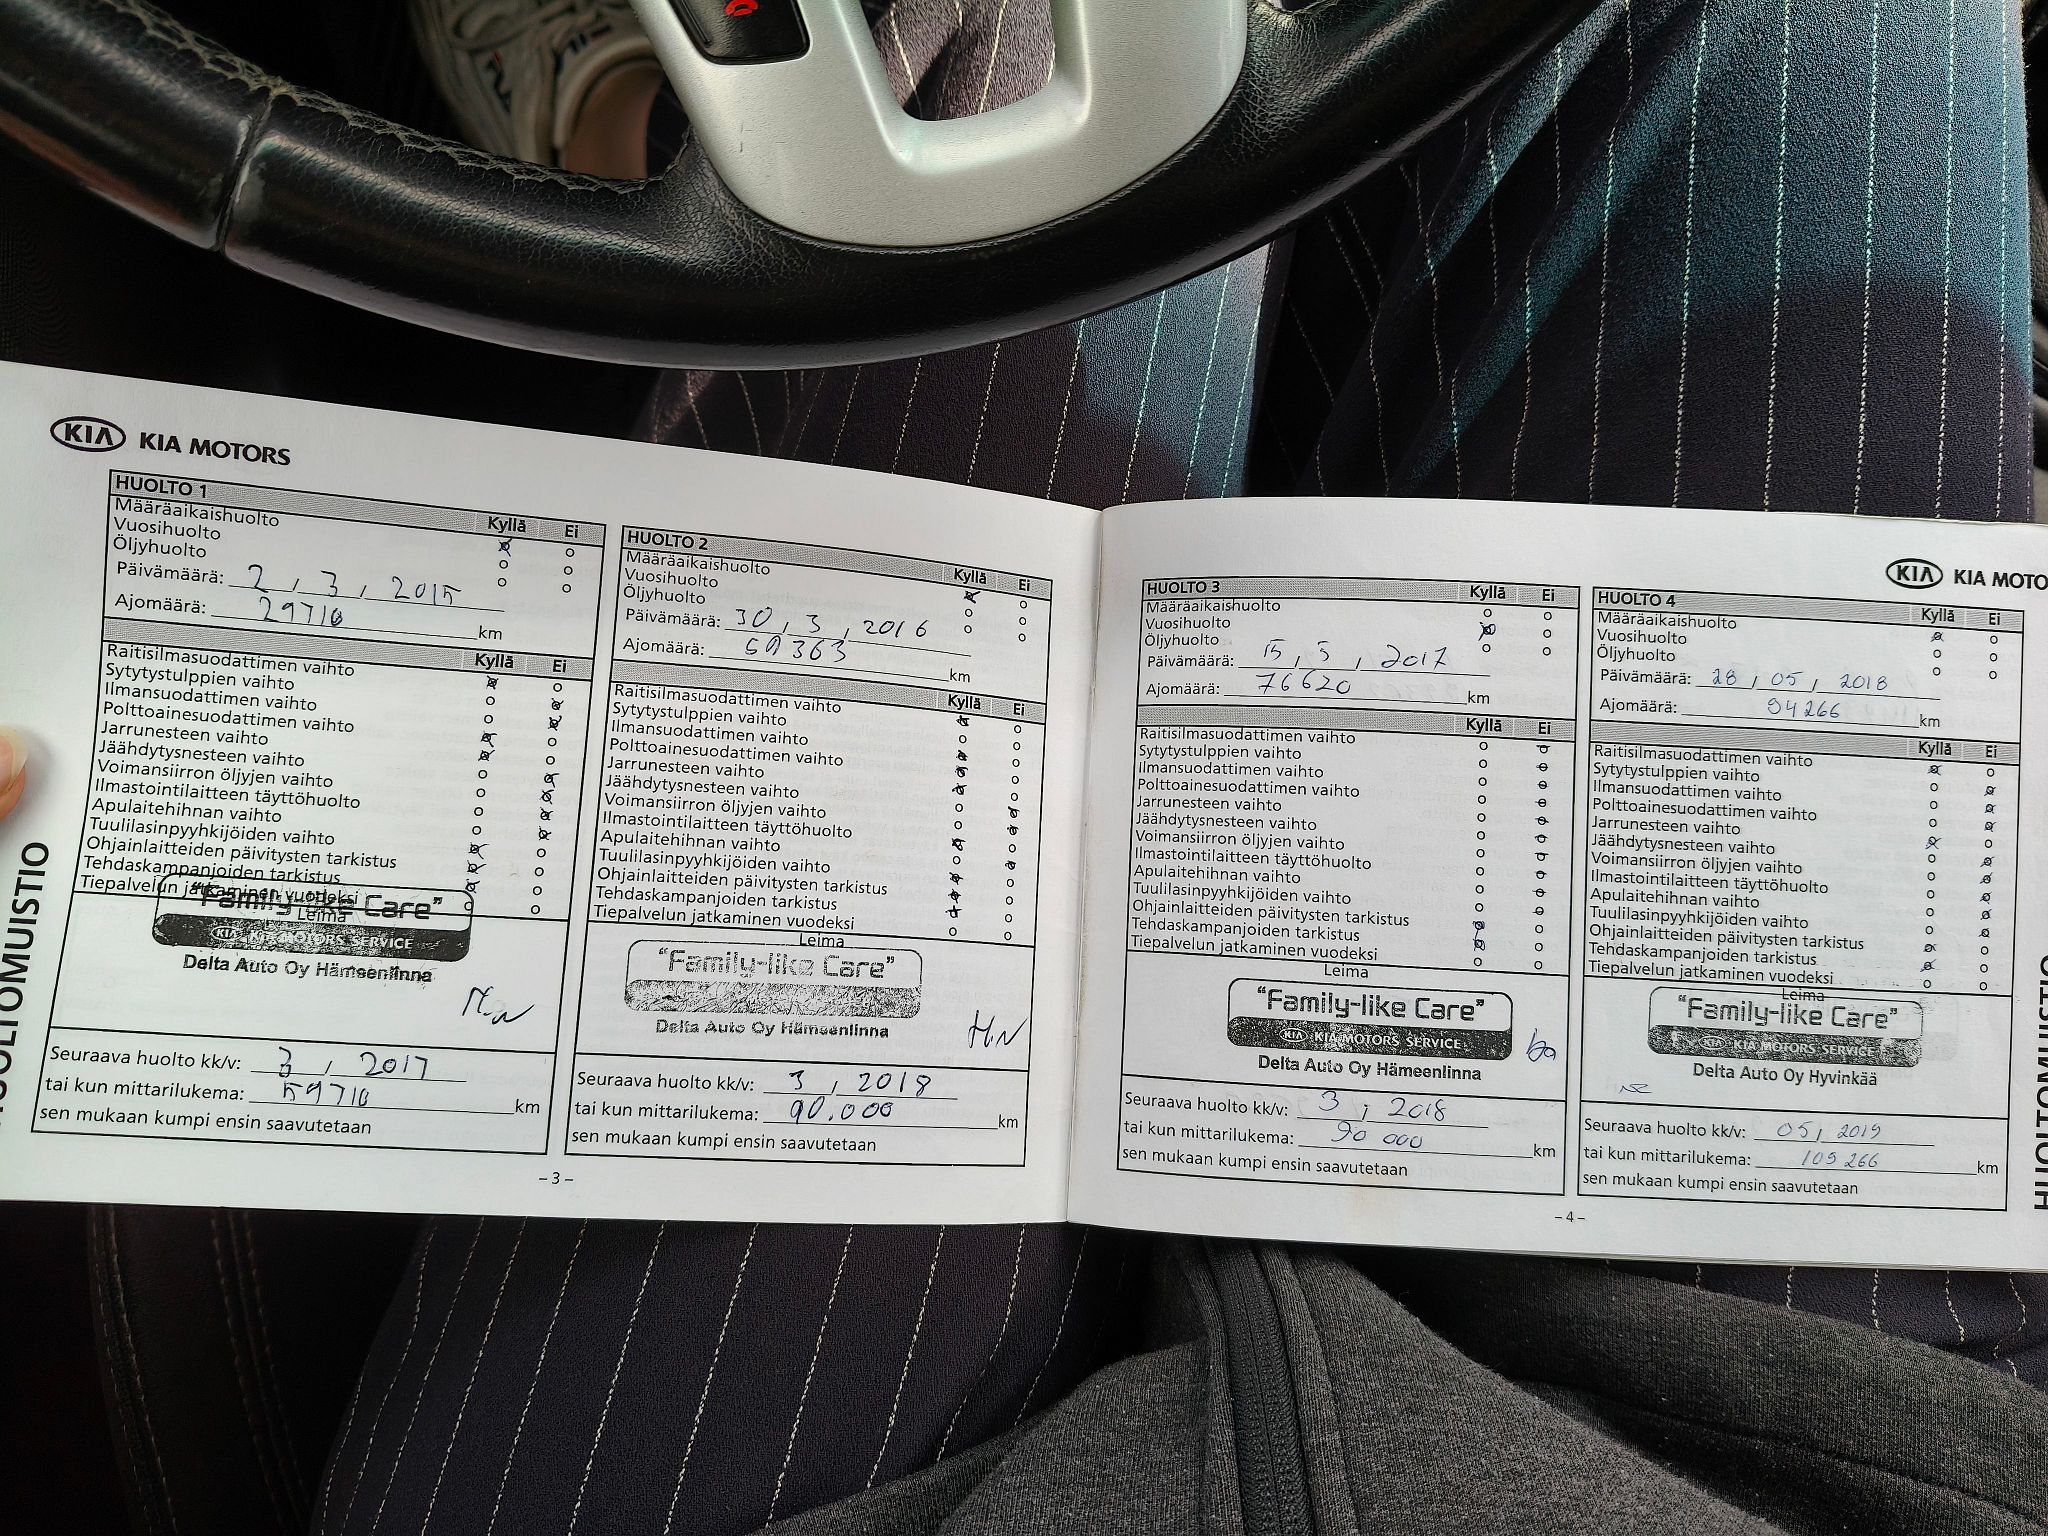 KIA KIA MOTORS
HUOLTOMUISTIO
HUOLTO 1
Kyllä Ei
Määräaikaishuolto
Vuosihuolto
Öljyhuolto
Päivämäärä: 2, 3, 2015
Ajomäärä: 29710 km
Kyllä Ei
Raitisilmasuodattimen vaihto
Sytytystulppien vaihto
Ilmansuodattimen vaihto
Polttoainesuodattimen vaihto
Jarrunesteen vaihto
Jäähdytysnesteen vaihto
Voimansiirron öljyjen vaihto
Ilmastointilaitteen täyttöhuolto
Apulaitehihnan vaihto
Tuulilasinpyyhkijöiden vaihto
Ohjainlaitteiden päivitysten tarkistus
Tehdaskampanjoiden tarkistus
Tiepalvelun jatkaminen vuodeksi
Leima
"Family-like Care"
KIA KIA MOTORS SERVICE
Delta Auto Oy Hämeenlinna
Seuraava huolto kk/v: 3, 2017
tai kun mittarilukema: 59710 km
sen mukaan kumpi ensin saavutetaan
HUOLTO 2
Kyllä Ei
Määräaikaishuolto
Vuosihuolto
Öljyhuolto
Päivämäärä: 30, 3, 2016
Ajomäärä: 59363 km
Kyllä Ei
Raitisilmasuodattimen vaihto
Sytytystulppien vaihto
Ilmansuodattimen vaihto
Polttoainesuodattimen vaihto
Jarrunesteen vaihto
Jäähdytysnesteen vaihto
Voimansiirron öljyjen vaihto
Ilmastointilaitteen täyttöhuolto
Apulaitehihnan vaihto
Tuulilasinpyyhkijöiden vaihto
Ohjainlaitteiden päivitysten tarkistus
Tehdaskampanjoiden tarkistus
Tiepalvelun jatkaminen vuodeksi
Leima
"Family-like Care"
Delta Auto Oy Hämeenlinna
H.N
Seuraava huolto kk/v: 3, 2018
tai kun mittarilukema: 90.000 km
sen mukaan kumpi ensin saavutetaan
- 3 -
KIA KIA MOTO
HUOLTO 3
Kyllä Ei
Määräaikaishuolto
Vuosihuolto
Öljyhuolto
Päivämäärä: 15, 5, 2017
Ajomäärä: 76620 km
Kyllä Ei
Raitisilmasuodattimen vaihto
Sytytystulppien vaihto
Ilmansuodattimen vaihto
Polttoainesuodattimen vaihto
Jarrunesteen vaihto
Jäähdytysnesteen vaihto
Voimansiirron öljyjen vaihto
Ilmastointilaitteen täyttöhuolto
Apulaitehihnan vaihto
Tuulilasinpyyhkijöiden vaihto
Ohjainlaitteiden päivitysten tarkistus
Tehdaskampanjoiden tarkistus
Tiepalvelun jatkaminen vuodeksi
Leima
"Family-like Care"
KIA KIA MOTORS SERVICE
Delta Auto Oy Hämeenlinna
Seuraava huolto kk/v: 3, 2018
tai kun mittarilukema: 90 000 km
sen mukaan kumpi ensin saavutetaan
HUOLTO 4
Kyllä Ei
Määräaikaishuolto
Vuosihuolto
Öljyhuolto
Päivämäärä: 28, 05, 2018
Ajomäärä: 94266 km
Kyllä Ei
Raitisilmasuodattimen vaihto
Sytytystulppien vaihto
Ilmansuodattimen vaihto
Polttoainesuodattimen vaihto
Jarrunesteen vaihto
Jäähdytysnesteen vaihto
Voimansiirron öljyjen vaihto
Ilmastointilaitteen täyttöhuolto
Apulaitehihnan vaihto
Tuulilasinpyyhkijöiden vaihto
Ohjainlaitteiden päivitysten tarkistus
Tehdaskampanjoiden tarkistus
Tiepalvelun jatkaminen vuodeksi
Leima
"Family-like Care"
KIA KIA MOTORS SERVICE
Delta Auto Oy Hyvinkää
Seuraava huolto kk/v: 05, 2019
tai kun mittarilukema: 109266 km
sen mukaan kumpi ensin saavutetaan
- 4 -
HUOLTOMUISTIO